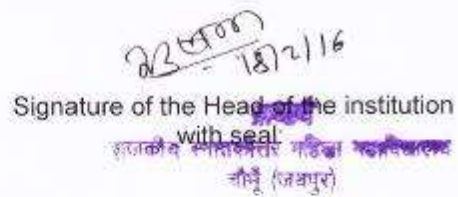 18/2/16
Signature of the Head of the institution
with seal
राजकीय स्नातकोत्तर महिला महाविद्यालय
चौमूँ (जयपुर)